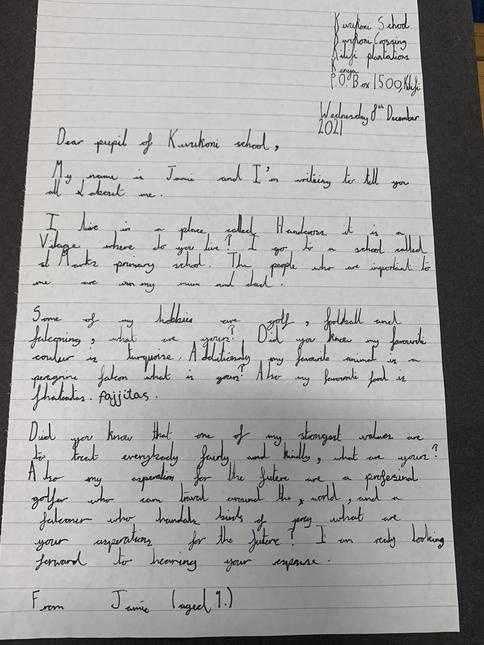 Kurukoni School
Kurukoni Crossing
Kilifi plantations
Kenya
P.O. Box 1500, Kilifi
Wednesday 8th December
2021
Dear pupil of Kurukoni school,
My name is Jamie and I'm writing to tell you
all about me.
I live in a place called Handcross it is a
Village where do you live? I go to a school called
st Marks primary school. The people who are important to
me are my mum and dad.
Some of my hobbies are golf, football and
falconing, what are yours? Did you know my favourite
colour is turquoise. Additionaly my favorite animal is a
peregrine falcon what is yours? Also my favorite food is
fajjitas.
Did you know that one of my strongest values are
to treat everybody fairly and kindly, what are yours?
Also my asperation for the future are a profesional
golfer who can travel around the world, and a
falconer who handals birds of prey what are
your asperations for the future? I am realy looking
forward to hearing your response.
From Jamie (aged 9.)